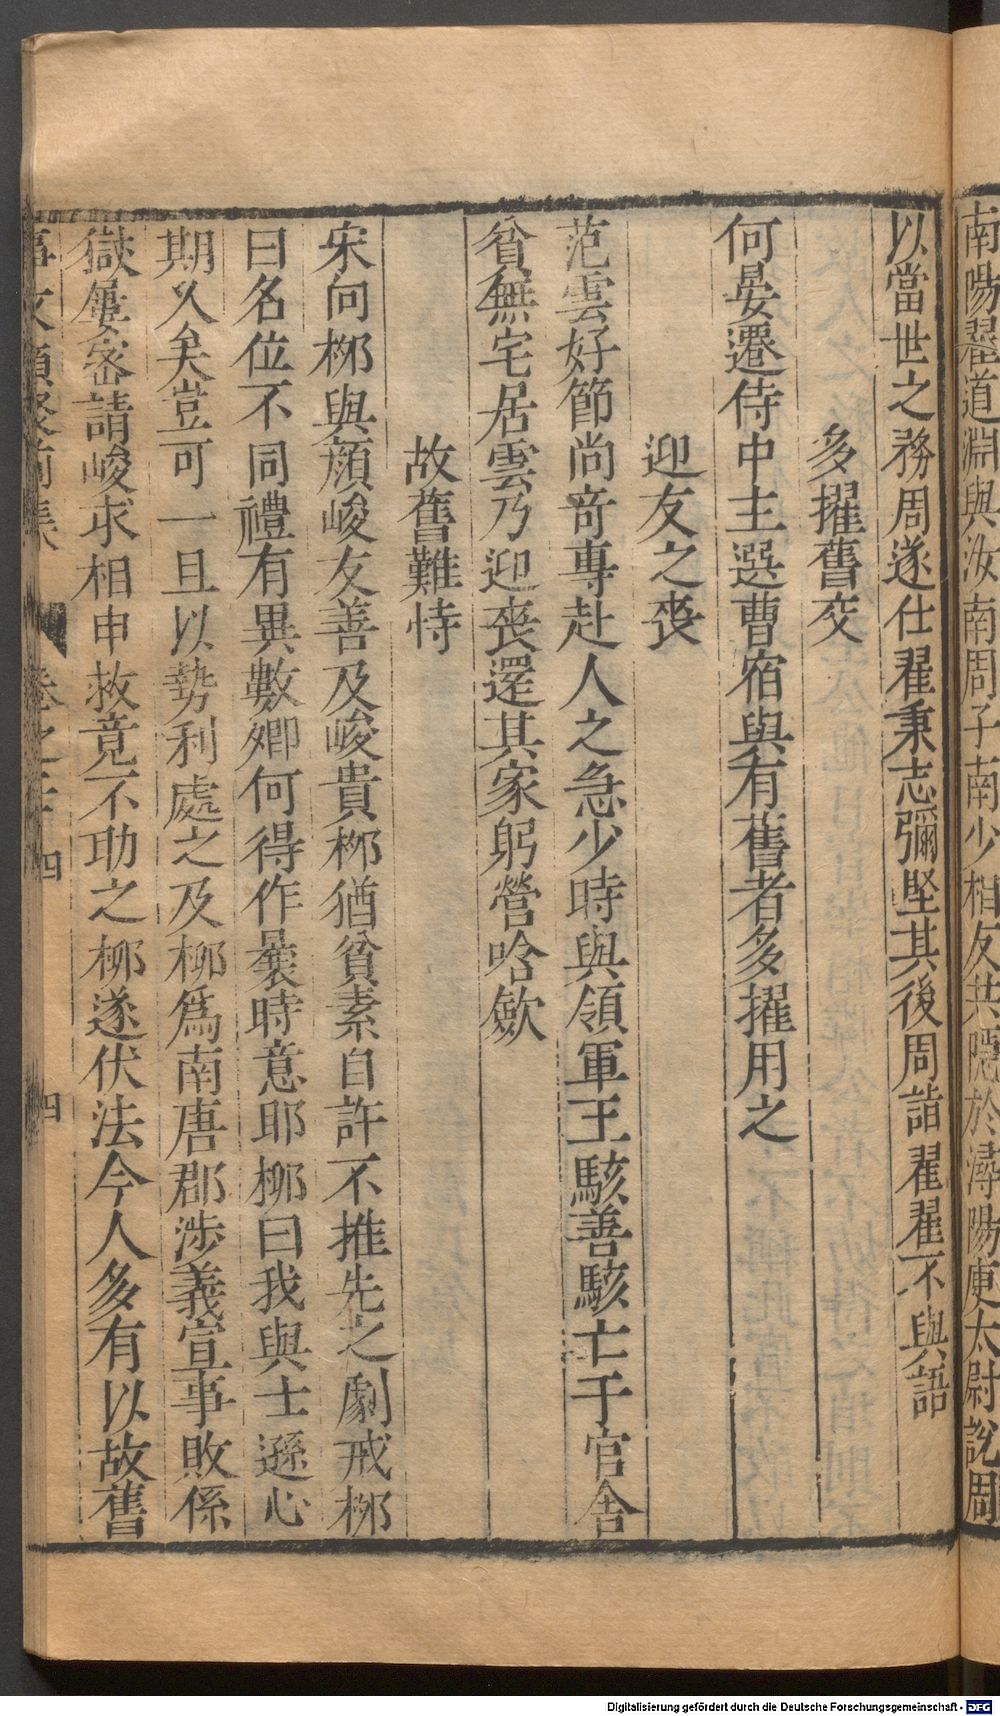 南陽翟道淵與汝南周子南少相友共隱於潯陽庾太尉說周
以當世之務周遂仕翟秉志彌堅其後周詣翟翟不與語
多擢舊交
何晏遷侍中主選曹宿與有舊者多擢用之
迎友之喪
范雲好節尚竒專赴人之急少時與領軍王駭善駭亡于官舎
貧無宅居雲乃迎喪還其家躬營唅歛
故舊難恃
宋向栁與顔峻友善及峻貴栁猶貧素自許不推先之劇戒栁
曰名位不同禮有異數卿何得作曩時意耶栁曰我與士遜心
期久矣豈可一旦以勢利處之及栁爲南唐郡涉義宣事敗係
獄屢密請峻求相申救竟不功之栁遂伏法今人多有以故舊
事文類聚前集 卷之二十四 四
Digitalisierung gefördert durch die Deutsche Forschungsgemeinschaft - DFG